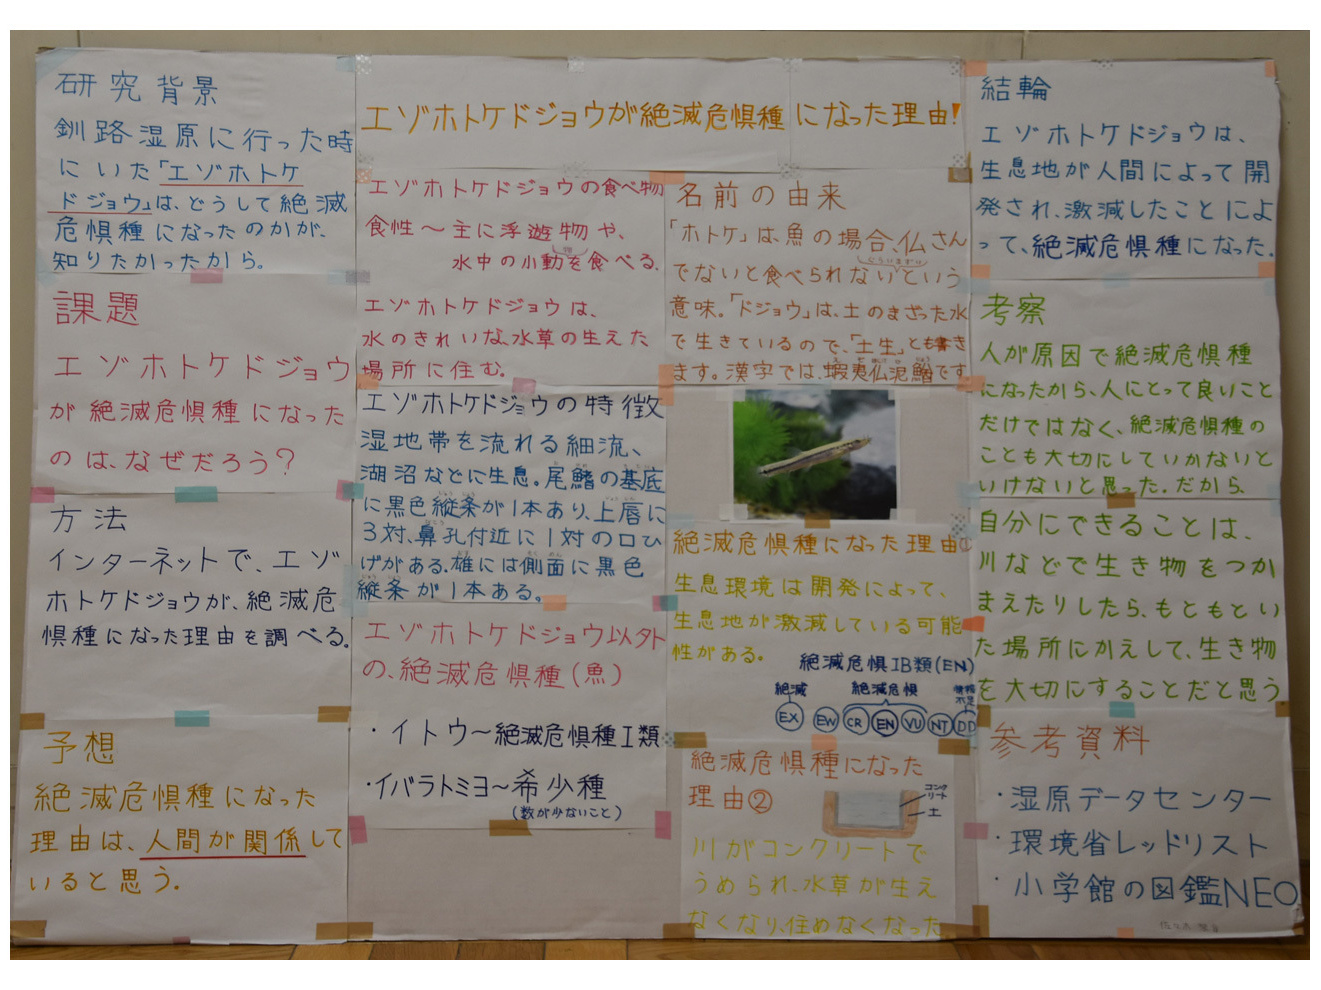 研究背景
釧路湿原に行った時
にいた「エゾホトケ
ドジョウ」は、どうして絶滅
危惧種になったのかが、
知りたかったから。
課題
エゾホトケドジョウ
が絶滅危惧種になった
のは、なぜだろう?
方法
インターネットで、エゾ
ホトケドジョウが、絶滅危
惧種になった理由を調べる。
予想
絶滅危惧種になった
理由は、人間が関係して
いると思う。
エゾホトケドジョウが絶滅危惧種になった理由!
エゾホトケドジョウの食べ物
食性~主に浮遊物や、
水中の小動を食べる。
エゾホトケドジョウは、
水のきれいな、水草の生えた
場所に住む。
エゾホトケドジョウの特徴
湿地帯を流れる細流、
湖沼などに生息。尾鰭の基底
に黒色縦条が1本あり、上唇に
3対、鼻孔付近に1対の口ひ
げがある。雄には側面に黒色
縦条が1本ある。
エゾホトケドジョウ以外
の、絶滅危惧種(魚)
・イトウ~絶滅危惧種I類
・イバラトミヨ~希少種
(数が少ないこと)
名前の由来
「ホトケ」は、魚の場合、仏さん
でないと食べられないという
意味。「ドジョウ」は、土のまざった水
で生きているので、「土生」とも書き
ます。漢字では、蝦夷仏泥鰌です
絶滅危惧種になった理由①
生息環境は開発によって、
生息地が激減している可能
性がある。
絶滅危惧IB類(EN)
絶滅 絶滅危惧 情報不足
EX EW CR EN VU NT DD
絶滅危惧種になった
理由②
コンクリート
土
川がコンクリートで
うめられ、水草が生え
なくなり、住めなくなった。
結輪
エゾホトケドジョウは、
生息地が人間によって開
発され、激減したことによ
って、絶滅危惧種になった。
考察
人が原因で絶滅危惧種
になったから、人にとって良いこと
だけではなく、絶滅危惧種の
ことも大切にしていかないと
いけないと思った。だから、
自分にできることは、
川などで生き物をつか
まえたりしたら、もともとい
た場所にかえして、生き物
を大切にすることだと思う
参考資料
・湿原データセンター
・環境省レッドリスト
・小学館の図鑑NEO